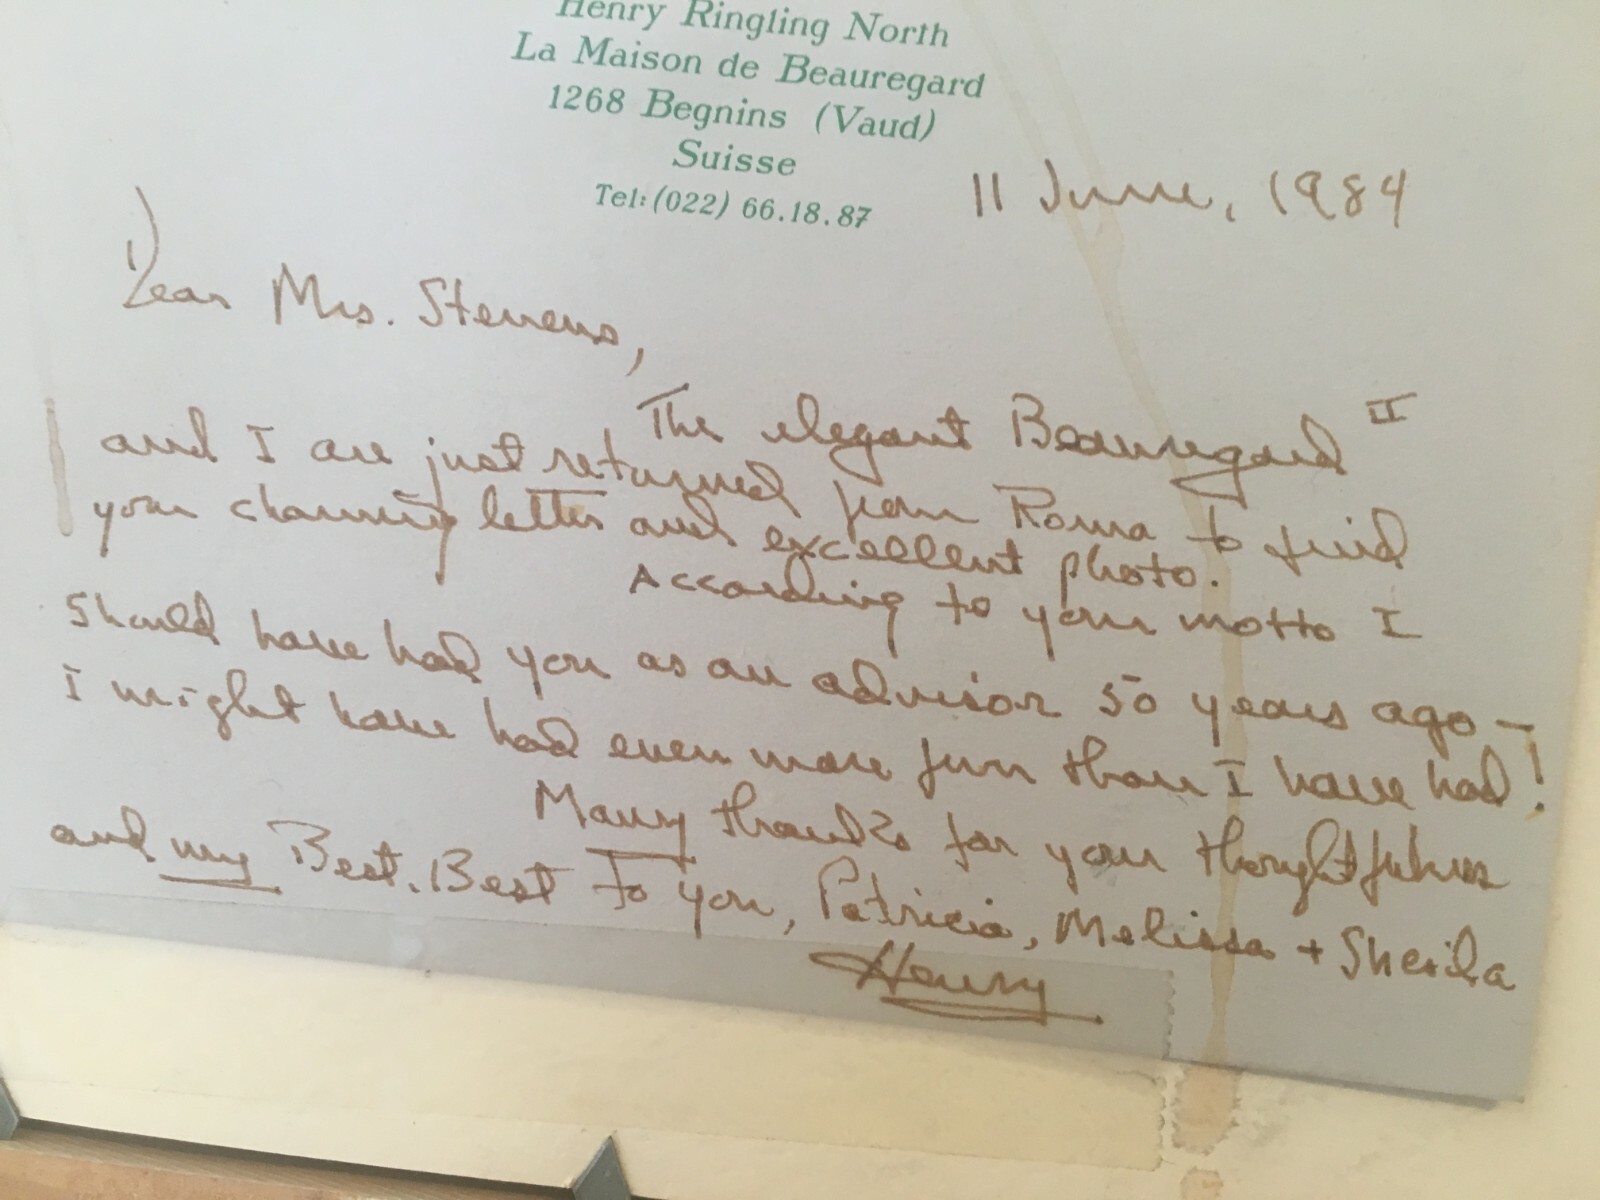 Henry Ringling North
La Maison de Beauregard
1268 Begnins (Vaud)
Suisse
Tel: (022) 66.18.87
11 June, 1984
Dear Mrs. Stevens,
The elegant Beauregard II
and I are just returned from Roma to find
your charming letter and excellent photo.
According to your motto I
should have had you as an advisor 50 years ago -
I might have had even more fun than I have had!
Many thanks for your thoughtfulness
and my Best. Best to you, Patricia, Melissa + Sheila
Henry